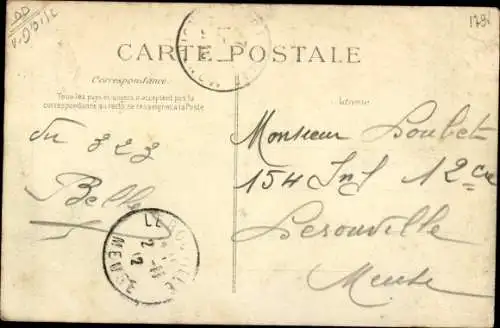 1784
CARTE POSTALE
Correspondance
Tous les pays étrangers n'acceptent pas la
correspondance au recto, se renseigner à la Poste
Adresse
Vu 323
Belle
LEROUVILLE
MEUSE
Monsieur Loubet
154 Inf 12 Cie
Lerouville
Meuse